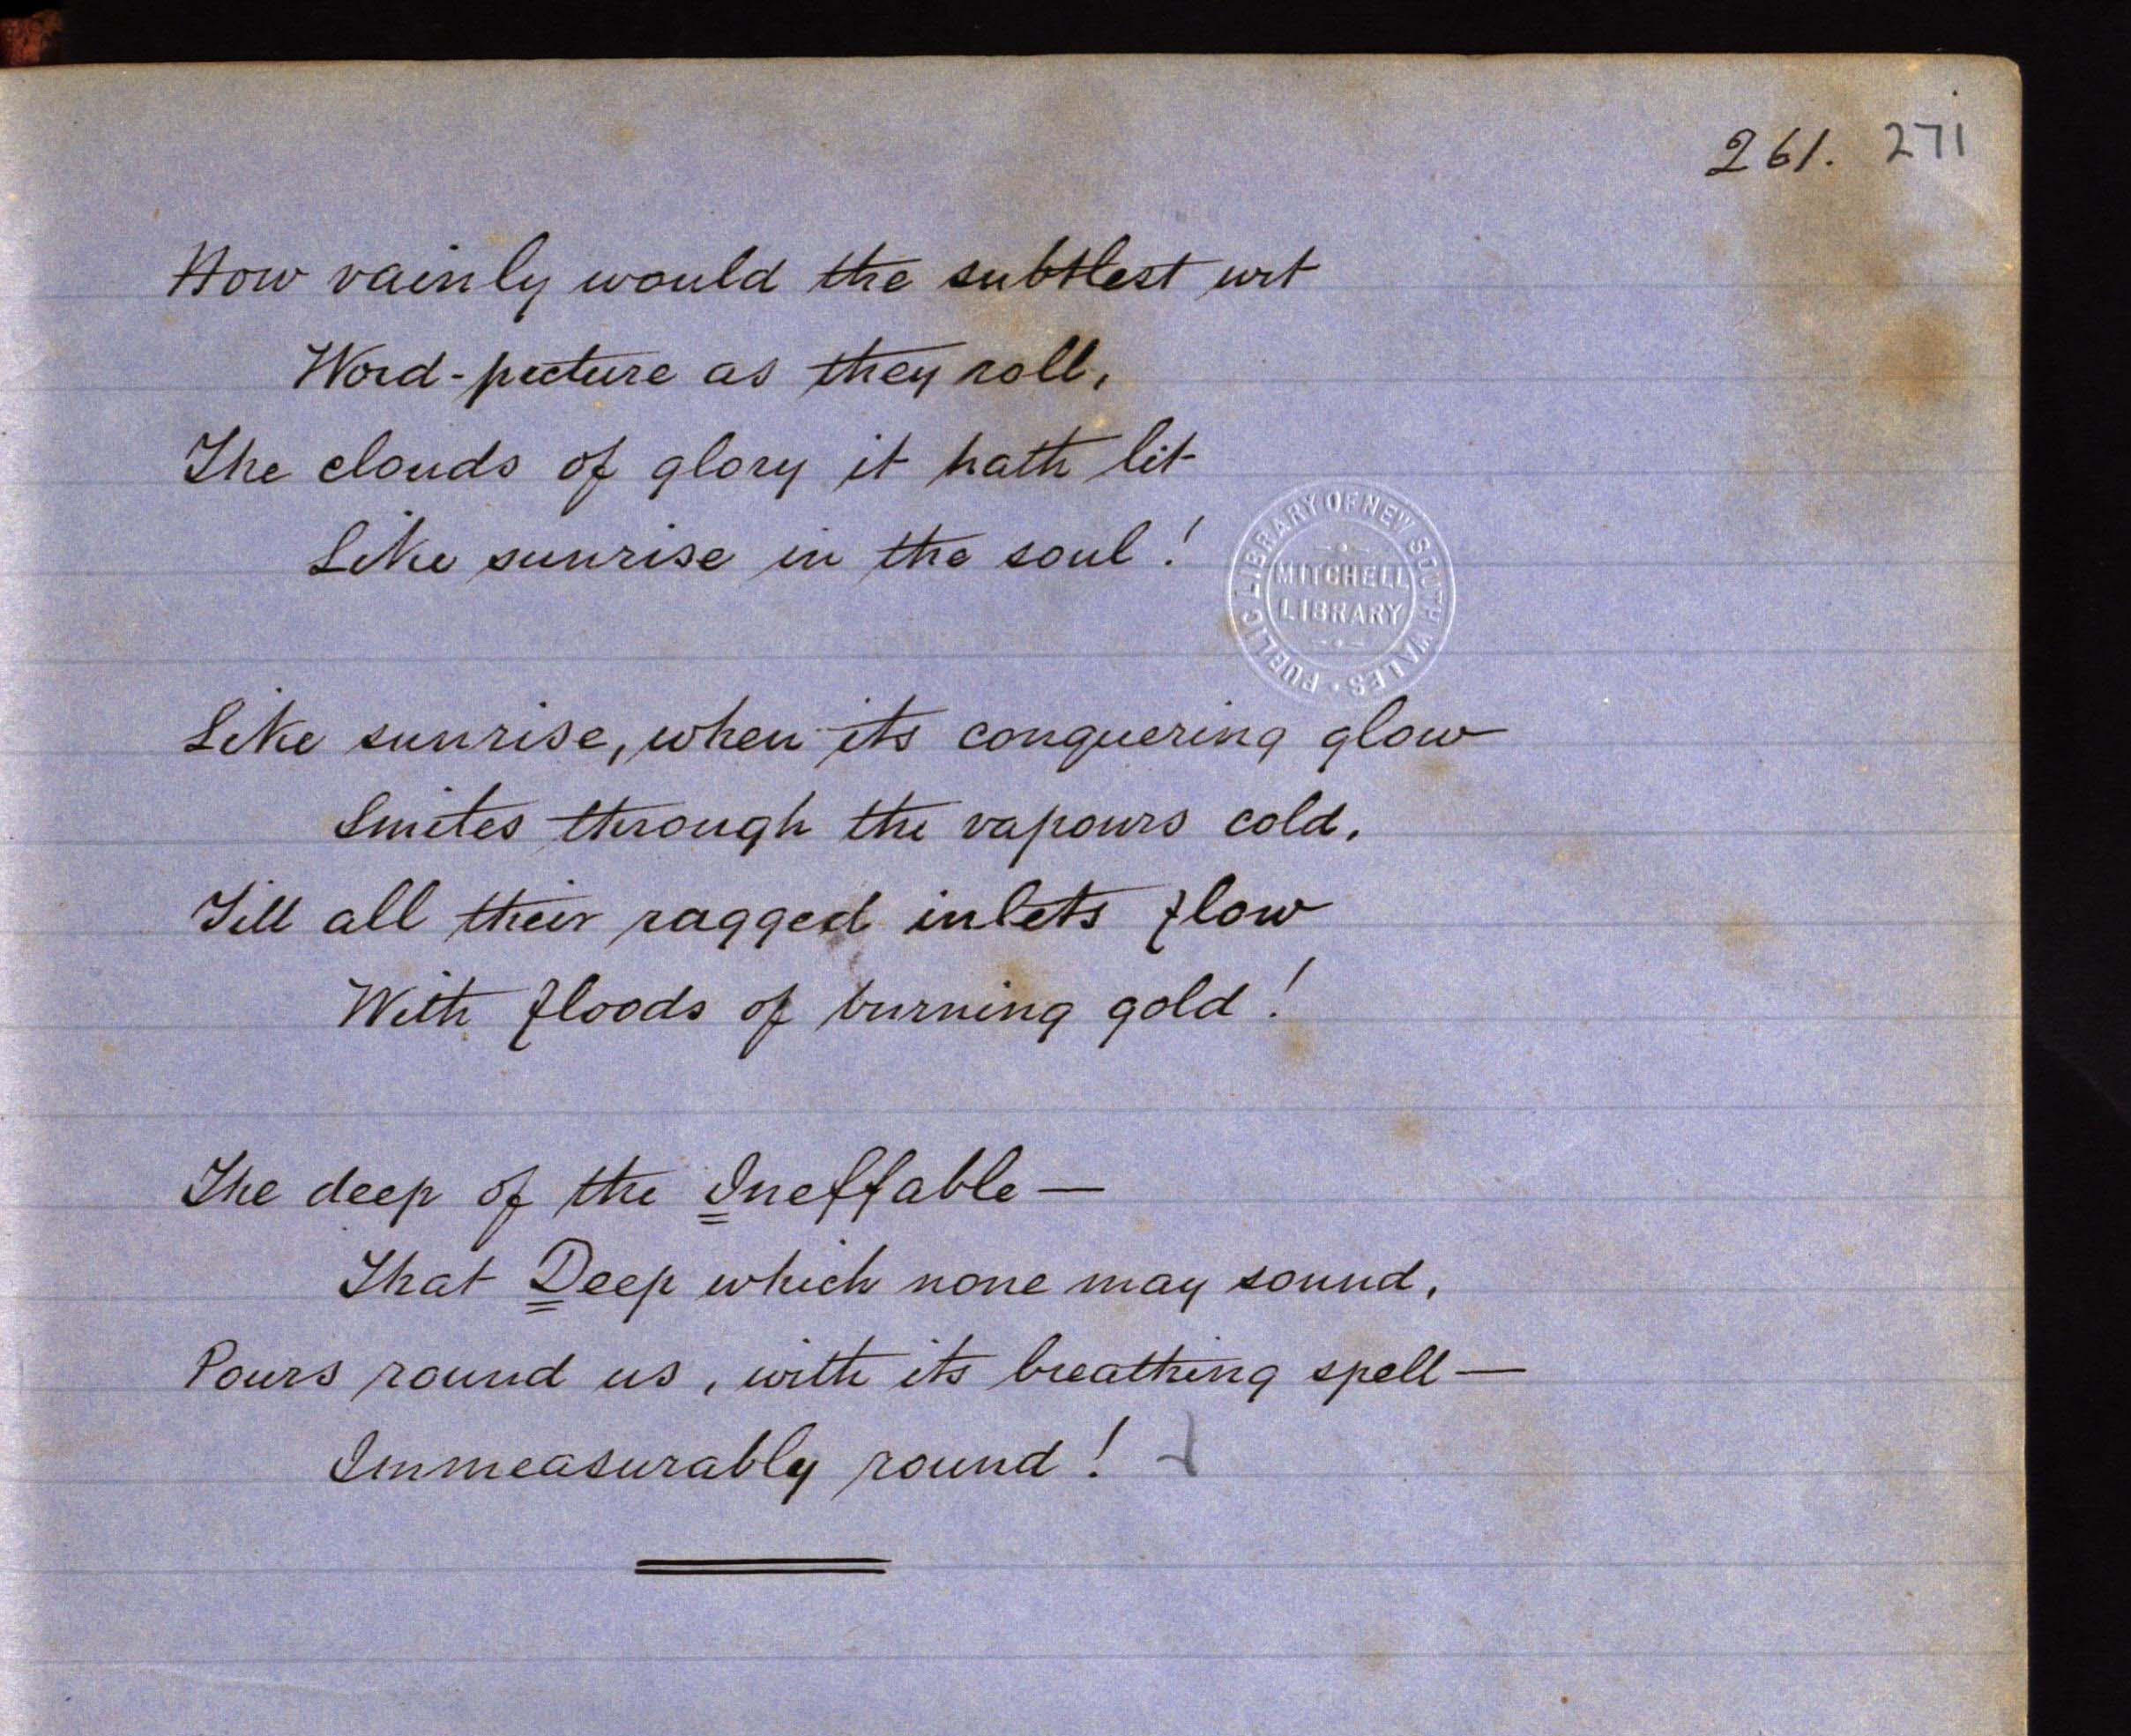 261. 271
How vainly would the subtlest wit
Word-picture as they roll,
The clouds of glory it hath lit
Like sunrise in the soul!
PUBLIC LIBRARY OF NEW SOUTH WALES
MITCHELL
LIBRARY
Like sunrise, when its conquering glow
Smites through the vapours cold,
Till all their ragged inlets flow
With floods of burning gold!
The deep of the Ineffable—
That Deep which none may sound,
Pours round us, with its breathing spell—
Immeasurably round!